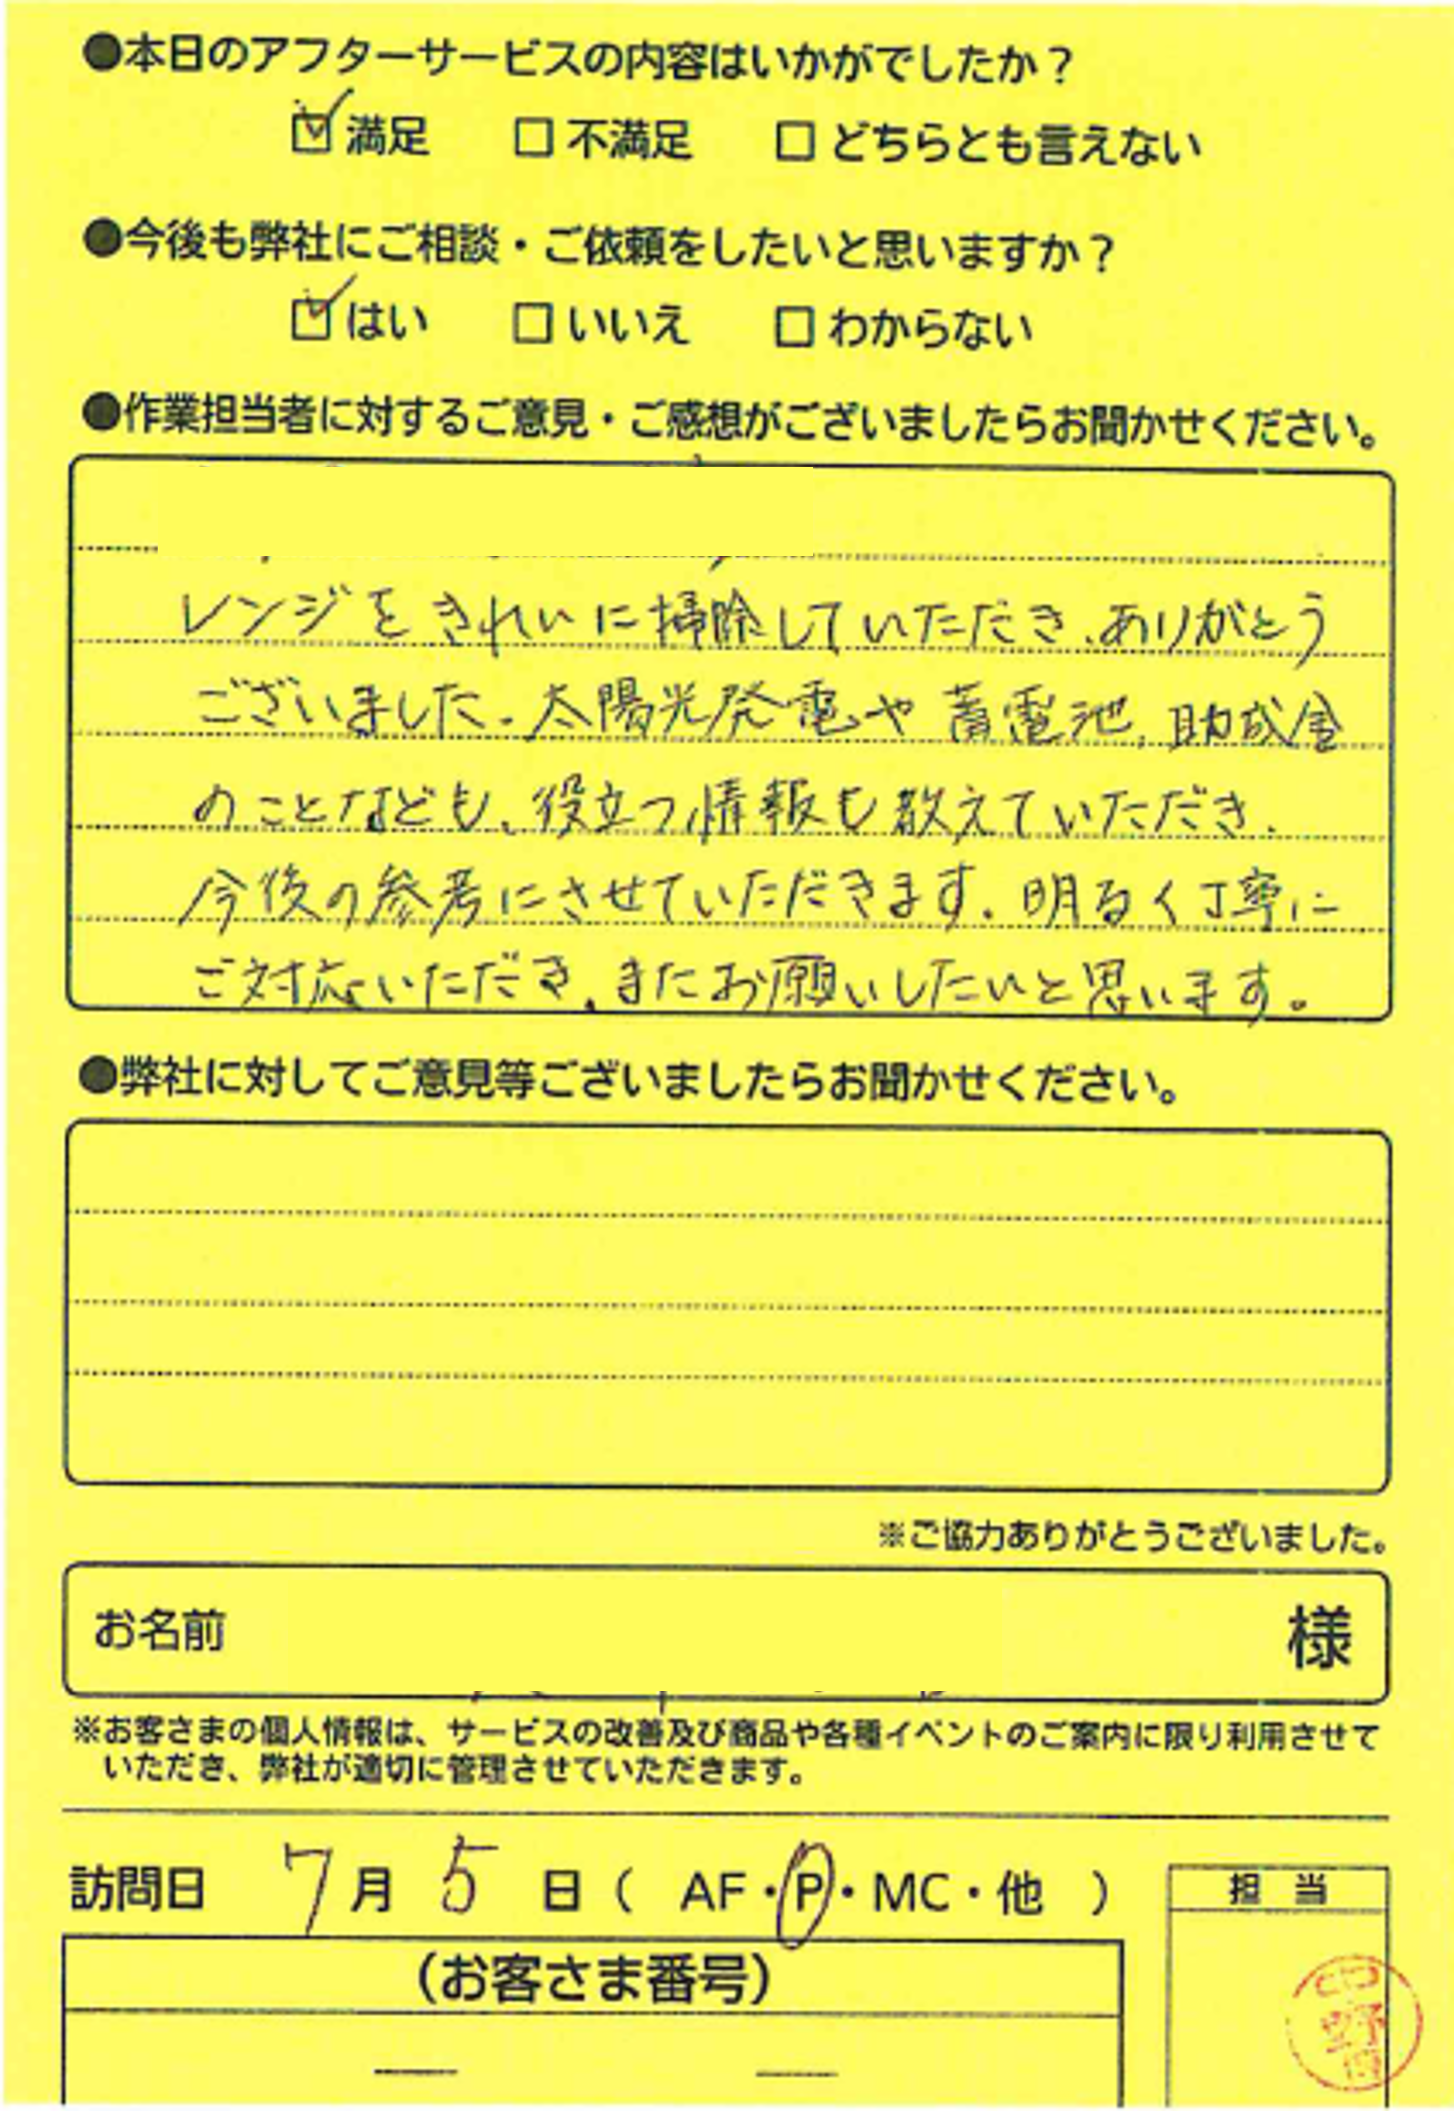 ●本日のアフターサービスの内容はいかがでしたか？
☑満足 □不満足 □どちらとも言えない
●今後も弊社にご相談・ご依頼をしたいと思いますか？
☑はい □いいえ □わからない
●作業担当者に対するご意見・ご感想がございましたらお聞かせください。
レンジをきれいに掃除していただき、ありがとう
ございました。太陽光発電や蓄電池、助成金
のことなども、役立つ情報も教えていただき、
今後の参考にさせていただきます。明るく丁寧に
ご対応いただき、またお願いしたいと思います。
●弊社に対してご意見等ございましたらお聞かせください。
※ご協力ありがとうございました。
お名前 様
※お客さまの個人情報は、サービスの改善及び商品や各種イベントのご案内に限り利用させて
いただき、弊社が適切に管理させていただきます。
訪問日 7月 5 日（ AF・P・MC・他 ）
担 当
（お客さま番号）
— —
野